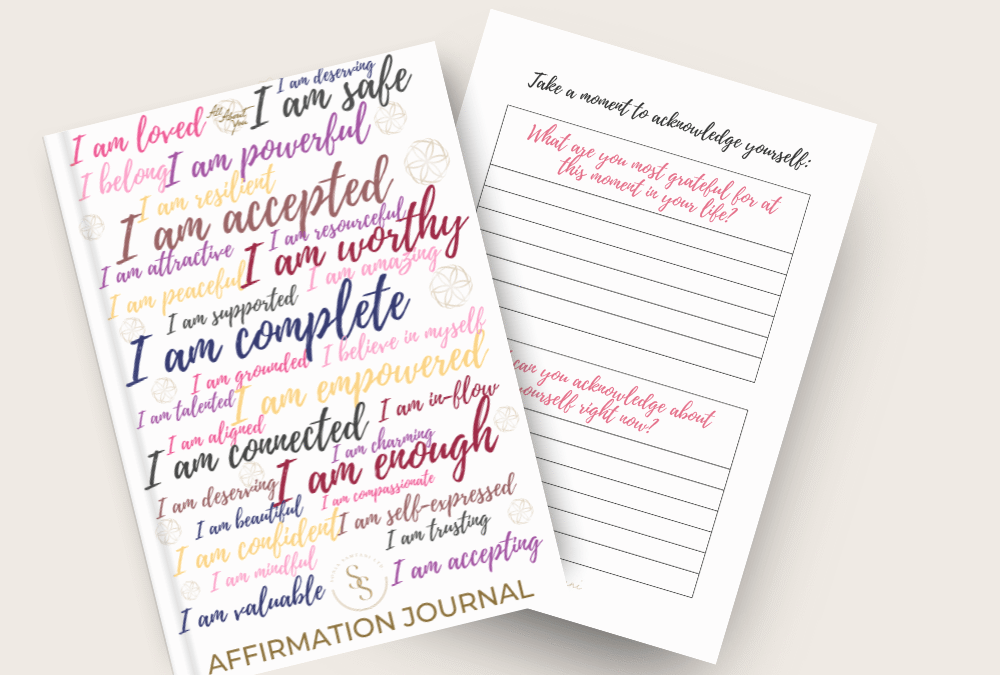 I am deserving
I am safe
I am loved
All About You
I am powerful
I belong
I am resilient
I am accepted
I am resourceful
I am attractive
I am worthy
I am amazing
I am peaceful
I am supported
I am complete
I believe in myself
I am grounded
I am empowered
I am talented
I am in-flow
I am aligned
I am connected
I am charming
I am enough
I am deserving
I am compassionate
I am beautiful
I am self-expressed
I am confident
I am trusting
I am mindful
I am accepting
I am valuable
SS
AFFIRMATION JOURNAL
Take a moment to acknowledge yourself:
What are you most grateful for at
this moment in your life?
can you acknowledge about
yourself right now?